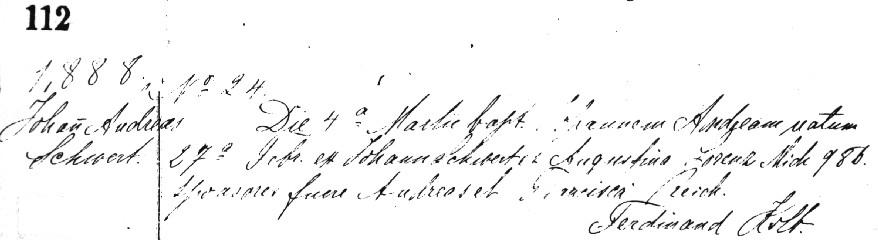 112
1888. No 24.
Johan̄ Andreas Die 4a Martii bapt. Joannem Andream natum
Schwert. 27a Febr. ex Johann Schwert et Augustina Lorenz Mich 986.
Sponsores fuere Andreas et Francisca
Ferdinand Kolb.